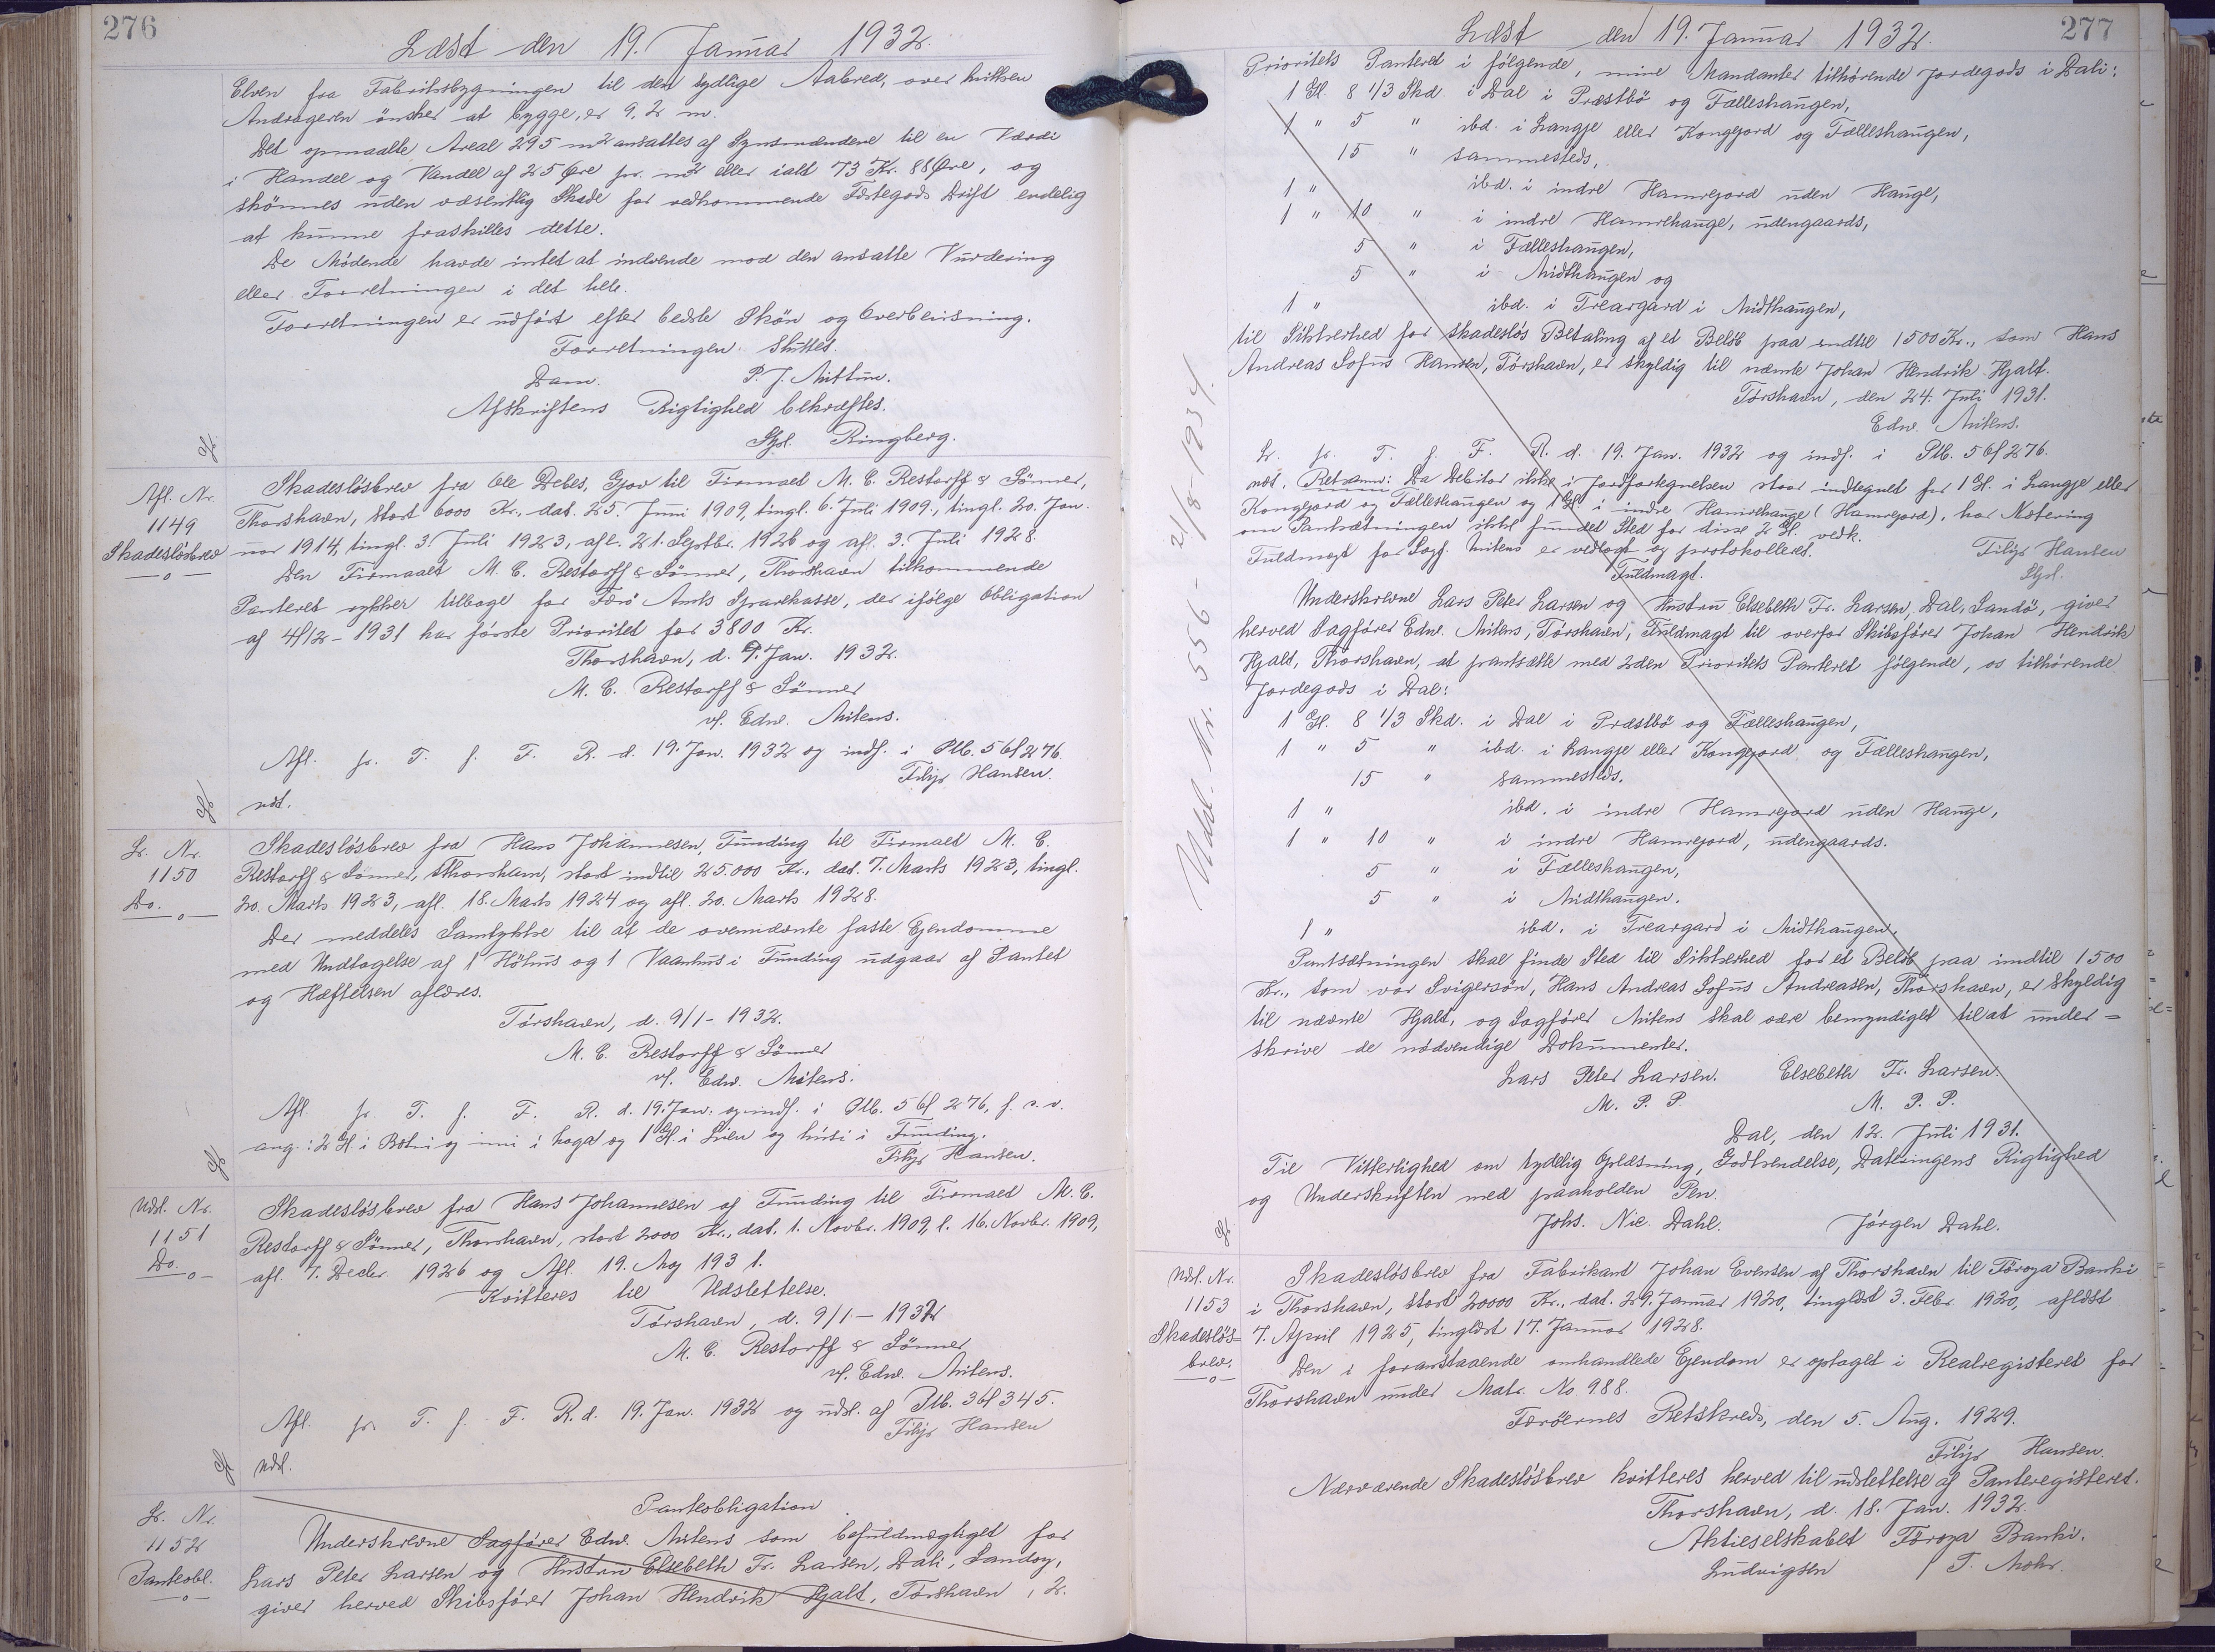 276
Læst den 19. Januar 1932.
Elven fra Fabriksbygningen til den sydlige Aabred, over hvilken
Andrageren ønsker at bygge, er 9,2 m.
Det opmaalte Areal 295 m² ansattes af Synsmændene til en Værdi
i Handel og Vandel af 25 Øre pr. m² eller ialt 73 Kr. 88 Øre, og
skønnes uden væsentlig Skade for vedkommende Fæstegods Drift endelig
at kunne fraskilles dette.
De Mødende havde intet at indvende mod den ansatte Vurdering
eller Forretningen i det hele.
Forretningen er udført efter bedste Skøn og Overbevisning.
Forretningen Sluttes.
Dam. P. J.
Afskriftens Rigtighed bekræftes.
Ringberg.
Afl. Nr.
1149
Skadesløsbrev
Skadesløsbrev fra Ole Debes, Gjov til Firmaet M. C. Restorff & Sønner,
Thorshavn, stort 6000 Kr., dat. 25. Juni 1909, tingl. 6. Juli 1909, tingl. 20. Jan-
uar 1914, tingl. 3. Juli 1923, afl. 21. Septbr. 1926 og afl. 3. Juli 1928.
Den Firmaet M. C. Restorff & Sønner, Thorshavn tilkommende
Panteret rykker tilbage for Færø Amts Sparekasse, der ifølge Obligation
af 4/12 - 1931 har første Prioritet for 3800 Kr.
Thorshavn, d. 9. Jan. 1932.
M. C. Restorff & Sønner
v/. Edw. Mitens.
Afl. fr. T. f. F. R. d. 19. Jan. 1932 og indf. i Plb. 5 bl 276.
Filip Hansen.
ndt.
Lr. Nr.
1150
Do.
Skadesløsbrev fra Hans Johannesen, Funding til Firmaet M. C.
Restorff & Sønner, Thorshavn, stort indtil 25.000 Kr., dat. 7. Marts 1923, tingl.
20. Marts 1923, afl. 18. Marts 1924 og afl. 20. Marts 1928.
Der meddeles Samtykke til at de ovennævnte faste Ejendomme
med Undtagelse af 1 Höhus og 1 Vaanhus i Funding udgaar af Pantet
og Hæftelsen aflæses.
Tórshavn, d. 9/1 - 1932.
M. C. Restorff & Sønner
v/. Edw. Mitens.
Afl. fr. T. f. F. R. d. 19. Jan. og indf. i Plb. 5 bl 276, f. s. v.
ang.: 2 Gl. i Botni og inni i haga og 1 Gl. i Lien og húsi i Funding.
Filip Hansen.
Udsl. Nr.
1151
Do.
Skadesløsbrev fra Hans Johannesen af Funding til Firmaet M. C.
Restorff & Sønner, Thorshavn, stort 2000 Kr., dat. 1. Novbr. 1909, l. 16. Novbr. 1909,
afl. 7. Decbr. 1926 og Afl. 19. Maj 1931.
Kvitteres til Udslettelse.
Tórshavn, d. 9/1 - 1932
M. C. Restorff & Sønner
v/. Edw. Mitens.
Afl. fr. T. f. F. R. d. 19. Jan. 1932 og udsl. af Plb. 3 bl 345.
Filip Hansen
Udsl.
Lr. Nr.
1152
Panteobl.
Panteobligation
Underskrevne Sagfører Edw. Mitens som befuldmægtiget for
Lars Peter Larsen og Hustru Elsebeth Fr. Larsen, Dali, Sandoy,
giver herved Skibsfører Johan Hendrik Hjalt, Tórshavn, 2.
277
Læst den 19. Januar 1932.
Prioritets Panteret i følgende, mine Mandanter tilhørende Jordegods i Dali:
1 Gl. 8 1/3 Skd. i Dal i Præstbø og Fælleshaugen,
1 " 5 " ibd. i Langje eller Kongejord og Fælleshaugen,
15 " sammesteds,
1 " ibd. i indre Hamrejord uden Hauge,
1 " 10 " i indre Hamrehauge, udengaards,
5 " i Fælleshaugen,
5 " i Midthaugen og
1 " ibd. i Treargard i Midthaugen,
til Sikkerhed for skadesløs Betaling af et Beløb paa indtil 1500 Kr., som Hans
Andreas Sofus Hansen, Tórshavn, er skyldig til nævnte Johan Hendrik Hjalt.
Tórshavn, den 24. Juli 1931.
Edw. Mitens.
Lr. fr. T. f. F. R. d. 19. Jan. 1932 og indf. i Plb. 5 bl 276.
ndt. Ret.anm: Da Debitor ikke i Jordfortegnelsen staar indtegnet for 1 Gl. i Langje eller
Kongejord og Fælleshaugen og 1 Gl. i indre Hamrehauge (Hamrejord), har Notering
om Pantsætningen ikke fundet Sted for disse 2 Gl. vedk.
Fuldmagt for Sagf. Mitens er vedlagt og protokolleret.
Filip Hansen
Fuldmagt.
Underskrevne Lars Peter Larsen og Hustru Elsebeth Fr. Larsen, Dal, Sandö, giver
herved Sagfører Edw. Mitens, Tórshavn, Fuldmagt til overfor Skibsfører Johan Hendrik
Hjalt, Thorshavn, at pantsætte med 2den Prioritets Panteret følgende, os tilhørende
Jordegods i Dal:
1 Gl. 8 1/3 Skd. i Dal i Præstbø og Fælleshaugen,
1 " 5 " ibd. i Langje eller Kongejord og Fælleshaugen,
15 " sammesteds.
1 " ibd. i indre Hamrejord uden Hauge,
1 " 10 " i indre Hamrejord, udengaards.
5 " i Fælleshaugen,
5 " i Midthaugen.
1 " ibd. i Treargard i Midthaugen.
Pantsætningen skal finde Sted til Sikkerhed for et Beløb paa indtil 1500
Kr., som vor Svigersøn, Hans Andreas Sofus Andreasen, Thorshavn, er skyldig
til nævnte Hjalt, og Sagfører Mitens skal være bemyndiget til at under=
skrive de nødvendige Dokumenter.
Lars Peter Larsen. Elsebeth Fr. Larsen.
M. P. P. M. P. P.
Dal, den 12. Juli 1931.
Til Vitterlighed om tydelig Oplæsning, Godkendelse, Dateringens Rigtighed
og Underskriften med paaholden Pen.
Johs. Nic. Dahl. Jørgen Dahl.
Udsl. Nr. 556 - 21/8-1934.
Udsl. Nr.
1153
Skadesløs=
brev.
Skadesløsbrev fra Fabrikant Johan Evensen af Thorshavn til Föroya Banki
i Thorshavn, stort 20000 Kr., dat. 29. Januar 1920, tinglæst 3. Febr. 1920, aflæst
7. April 1925, tinglæst 17. Januar 1928.
Den i foranstaaende omhandlede Ejendom er optaget i Realregisteret for
Thorshavn under Matr. No. 988.
Færøernes Retskreds, den 5. Aug. 1929.
Filip Hansen.
Nærværende Skadesløsbrev kvitteres herved til udslettelse af Panteregisteret.
Thorshavn, d. 18. Jan. 1932.
Aktieselskabet Föroya Banki.
Ludvigsen / T. Mohr.